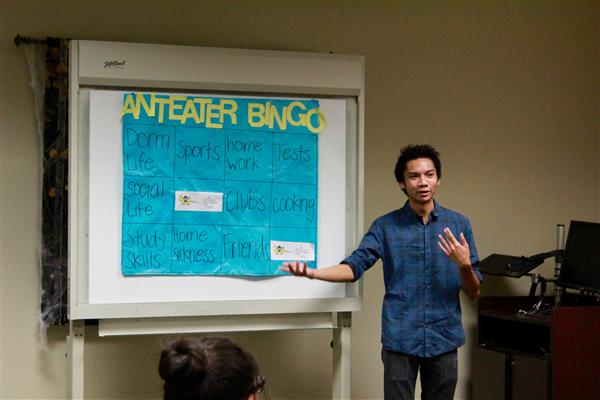 ANTEATER BINGO
Dorm Life
Sports
home work
Tests
social Life
Clubs
Cooking
Study Skills
Home sickness
Friends